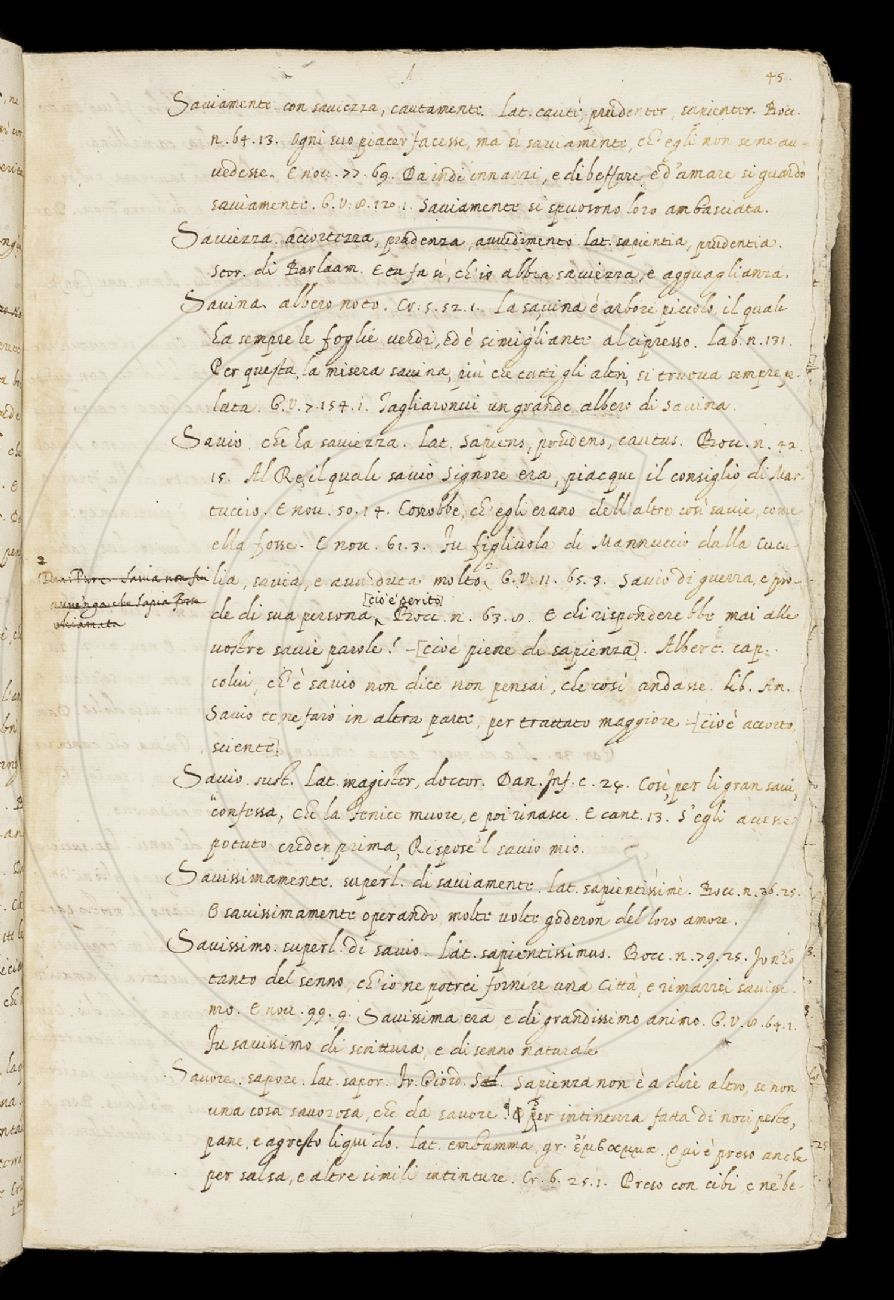 A 45.
Saviamente con saviezza, cautamente. lat. cautè, prudenter, sapienter. Bocc.
n. 64. 13. Ogni suo piacer facesse, ma sì saviamente, ch'egli non se ne au-
vedesse. E nov. 77. 69. Da indi innanzi, e di beffare, e d'amare si guardò
saviamente. G. V. 8. 120. 1. Saviamente si spuosono loro ambasciata.
Saviezza. accortezza, prudenza, avvedimento lat. sapientia, prudentia.
Stor. di Barlaam. E tu fa sì, ch'io abbia saviezza, e agguaglianza.
Savina. albero noto. Cr. 5. 52. 1. La savina è arbore piccolo, il quale
ha sempre le foglie verdi, ed è simigliante al cipresso. Lab. n. 131.
Per questa, la misera savina, più che tuti gli altri, si truova sempre pe-
lata. G. V. 7. 154. 1. Tagliaronvi un grande albero di savina.
Savio. che ha saviezza. Lat. Sapiens, prudens, cautus. Bocc. n. 42.
15. Al Re, il quale savio Signore era, piacque il consiglio di Mar-
tuccio. E nov. 50. 14. Conobbe, ch'egli erano dell'altre così savie, come
ella fosse. E nov. 61. 3. Fu figliuola di Mannuccio dalla Cucu-
2
lia, savia, e avveduta molto G. V. 11. 65. 3. Savio di guerra, e pro-
avvenga che Savia fosse
chiamata
[cioè perito]
de di sua persona Bocc. n. 63. 8. E chi risponderebbe mai alle
vostre savie parole? [cioè piene di sapienza]. Albert. cap.
colui, ch'è savio non dice non pensai, che così andasse. Lib. An.
Savio te ne farò in altra parte, per trattato maggiore [cioè accorto,
sciente]
Savio. sust. Lat. magister, doctor. Dan. Inf. c. 24. Così, per li gran savi,
confessa, che la Fenice muore, e poi rinasce. E cant. 13. S'egli avesse
potuto creder prima, Rispose 'l savio mio.
Savissimamente. superl. di saviamente. lat. sapientissimè. Bocc. n. 36. 25.
E savissimamente operando molte volte goderon del loro amore.
Savissimo. superl. di savio. lat. sapientissimus. Bocc. n. 79. 25. Io n'ho
tanto del senno, ch'io ne potrei fornire una Città, e rimarrei savissi-
mo. E nov. 99. 9. Savissima era e di grandissimo animo. G. V. 8. 64. 1.
Fu savissimo di scrittura, e di senno naturale
Savore. sapore. lat. sapor. Fr. Giord. Sapienza non è a dire altro, se non
una cosa savorosa, che da savore per intintura fatta di noci peste,
pane, e agresto liquido. lat. embamma, gr. ἔμβαμμα. Qui è preso anche
per salsa, e altre simili intinture. Cr. 6. 25. 1. Preso con cibi e ne' be-